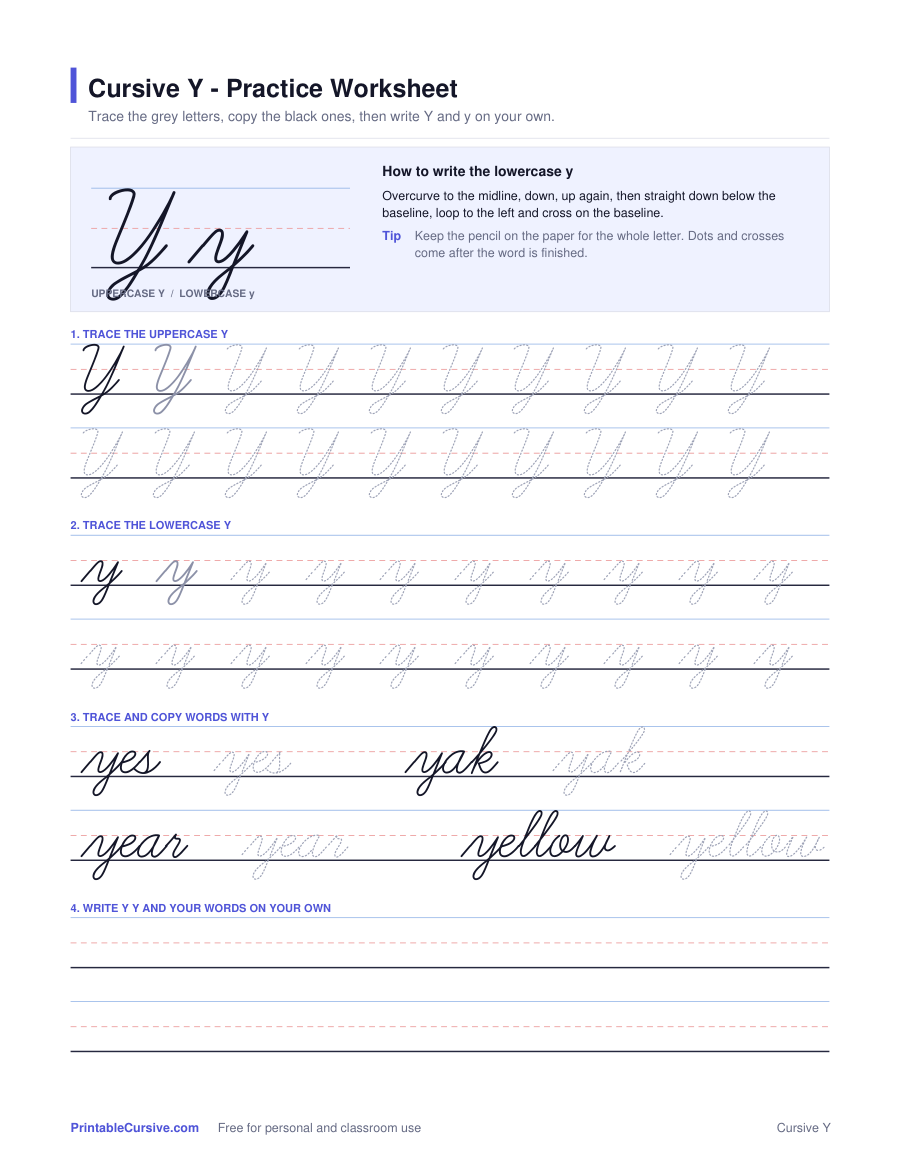 Cursive Y - Practice Worksheet
Trace the grey letters, copy the black ones, then write Y and y on your own.
Y y
UPPERCASE Y / LOWERCASE y
How to write the lowercase y
Overcurve to the midline, down, up again, then straight down below the
baseline, loop to the left and cross on the baseline.
Tip Keep the pencil on the paper for the whole letter. Dots and crosses
come after the word is finished.
1. TRACE THE UPPERCASE Y
Y Y Y Y Y Y Y Y Y Y
Y Y Y Y Y Y Y Y Y Y
2. TRACE THE LOWERCASE Y
y y y y y y y y y y
y y y y y y y y y y
3. TRACE AND COPY WORDS WITH Y
yes yes yak yak
year year yellow yellow
4. WRITE Y Y AND YOUR WORDS ON YOUR OWN
PrintableCursive.com Free for personal and classroom use Cursive Y